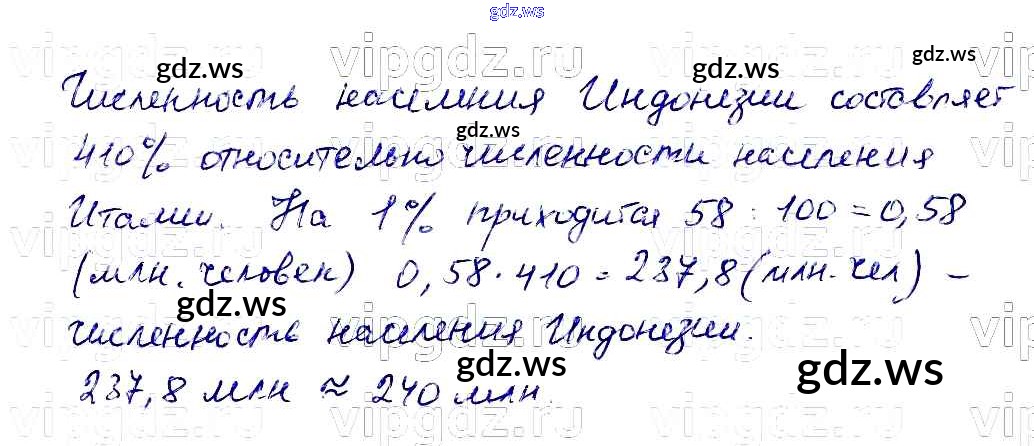 gdz.ws
vipgdz.ru vipgdz.ru vipgdz.ru
gdz.ws gdz.ws gdz.ws
Численность населения Индонезии составляет
gdz.ws
410% относительно численности населения
Италии. На 1% приходится 58 : 100 = 0,58
(млн. человек) 0,58 · 410 = 237,8 (млн. чел) –
gdz.ws
численность населения Индонезии.
gdz.ws gdz.ws
237,8 млн ≈ 240 млн.